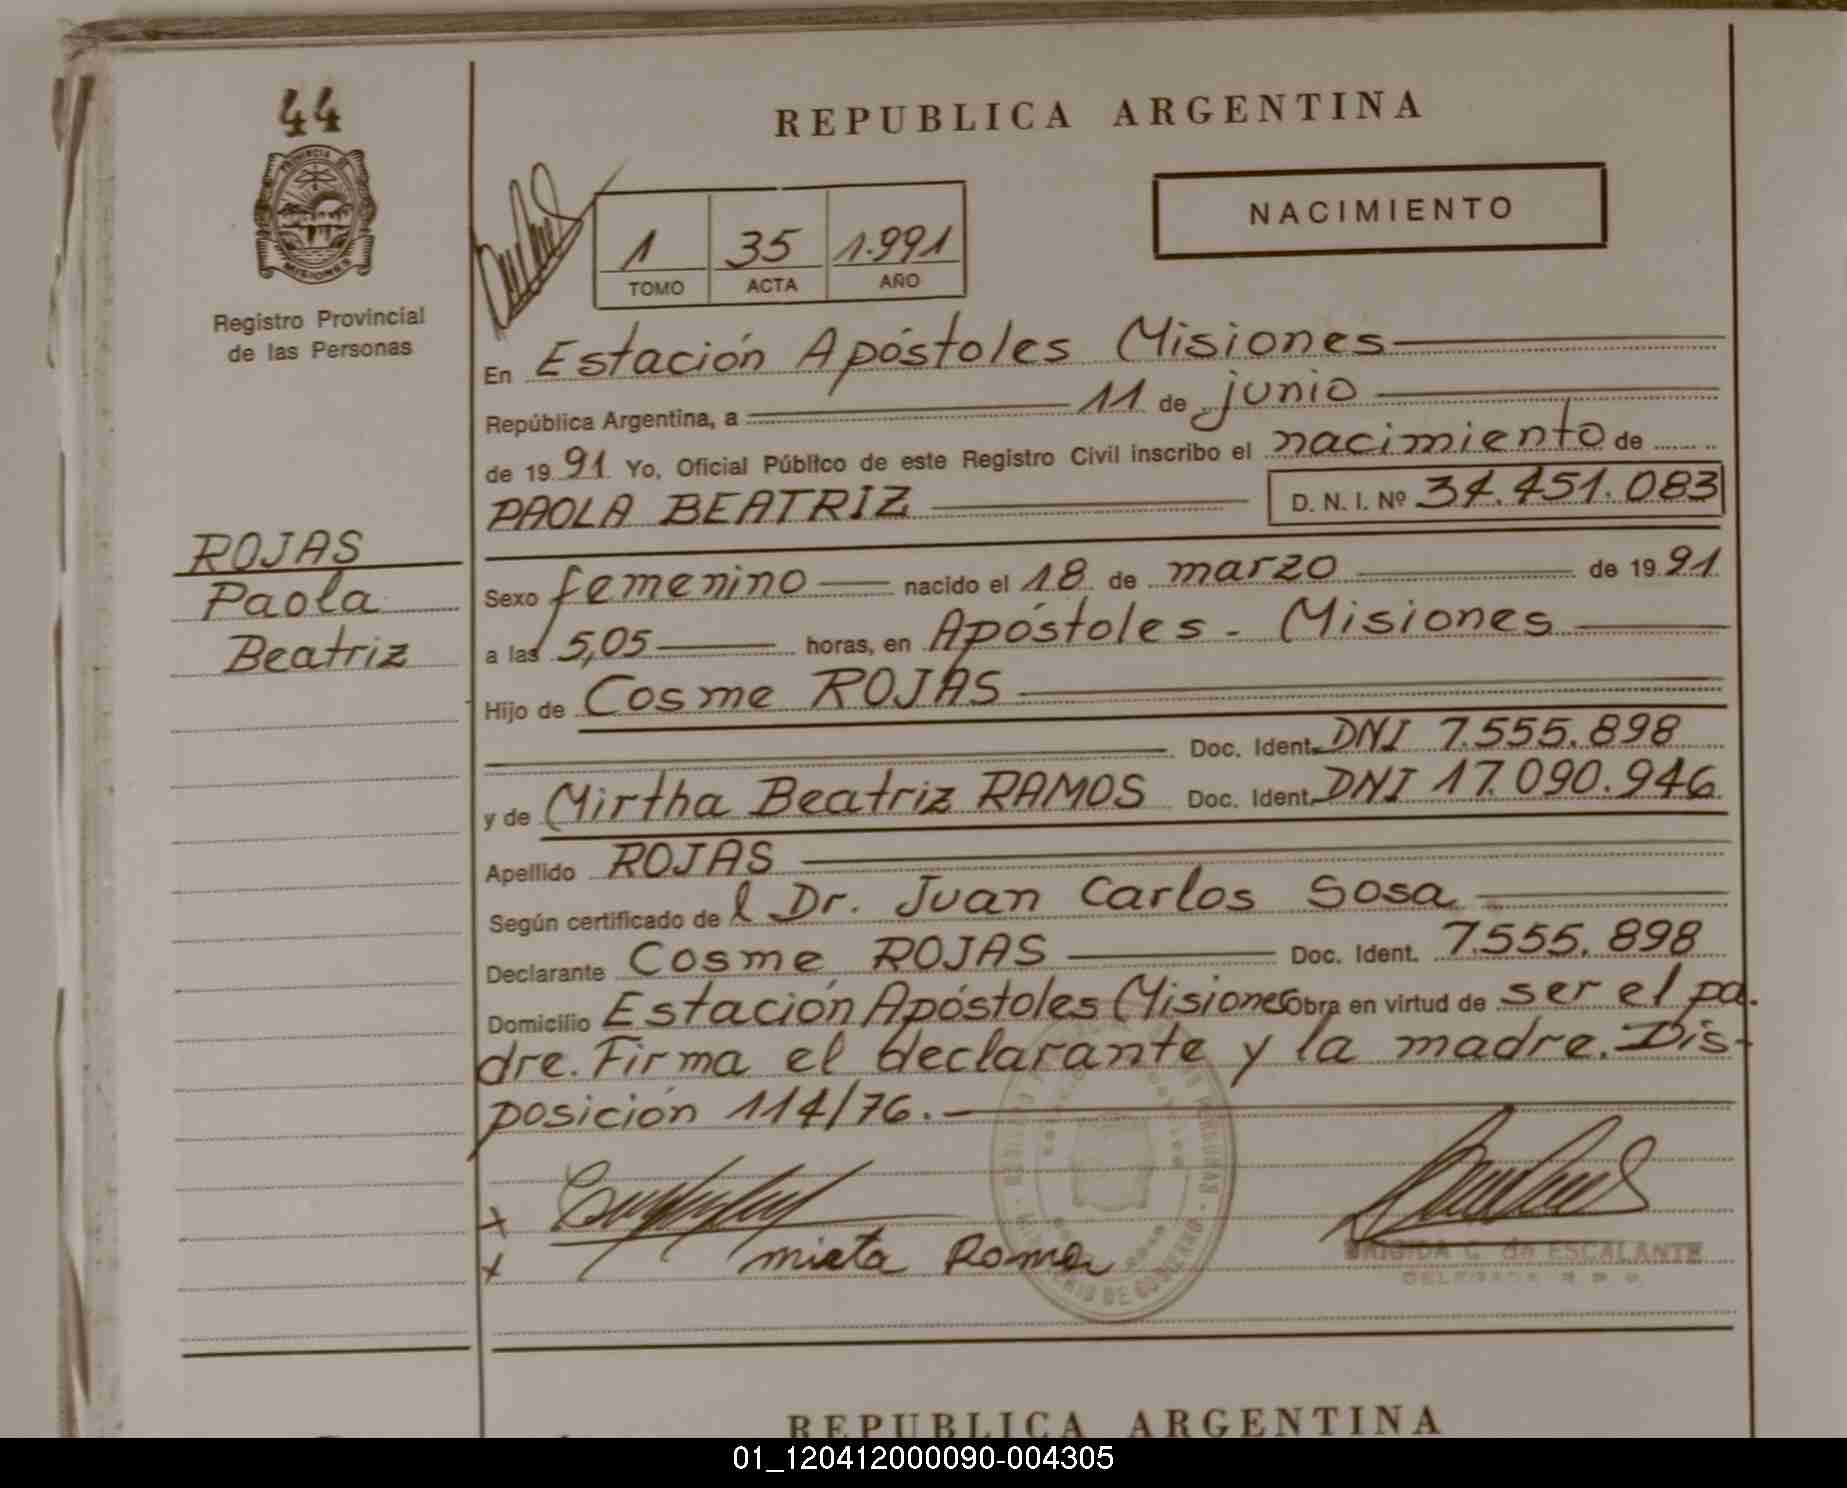 44
PROVINCIA DE
MISIONES
Registro Provincial
de las Personas
ROJAS
Paola
Beatriz
REPUBLICA ARGENTINA
NACIMIENTO
1 35 1.991
TOMO ACTA AÑO
En Estación Apóstoles Misiones
República Argentina, a 11 de junio
de 19 91 Yo, Oficial Público de este Registro Civil inscribo el nacimiento de
PAOLA BEATRIZ D. N. I. Nº 34.451.083
Sexo femenino nacido el 18 de marzo de 19 91
a las 5,05 horas, en Apóstoles - Misiones
Hijo de Cosme ROJAS
Doc. Ident. DNI 7.555.898
y de Mirtha Beatriz RAMOS Doc. Ident. DNI 17.090.946
Apellido ROJAS
Según certificado de l Dr. Juan Carlos Sosa
Declarante Cosme ROJAS Doc. Ident. 7.555.898
Domicilio Estación Apóstoles Misiones Obra en virtud de ser el pa-
dre. Firma el declarante y la madre. Dis-
posición 114/76.-
x
x mirta Romo
BRIGIDA C. de ESCALANTE
DELEGADA R. P. P.
MINISTERIO DE GOBIERNO
REPUBLICA ARGENTINA
01_120412000090-004305